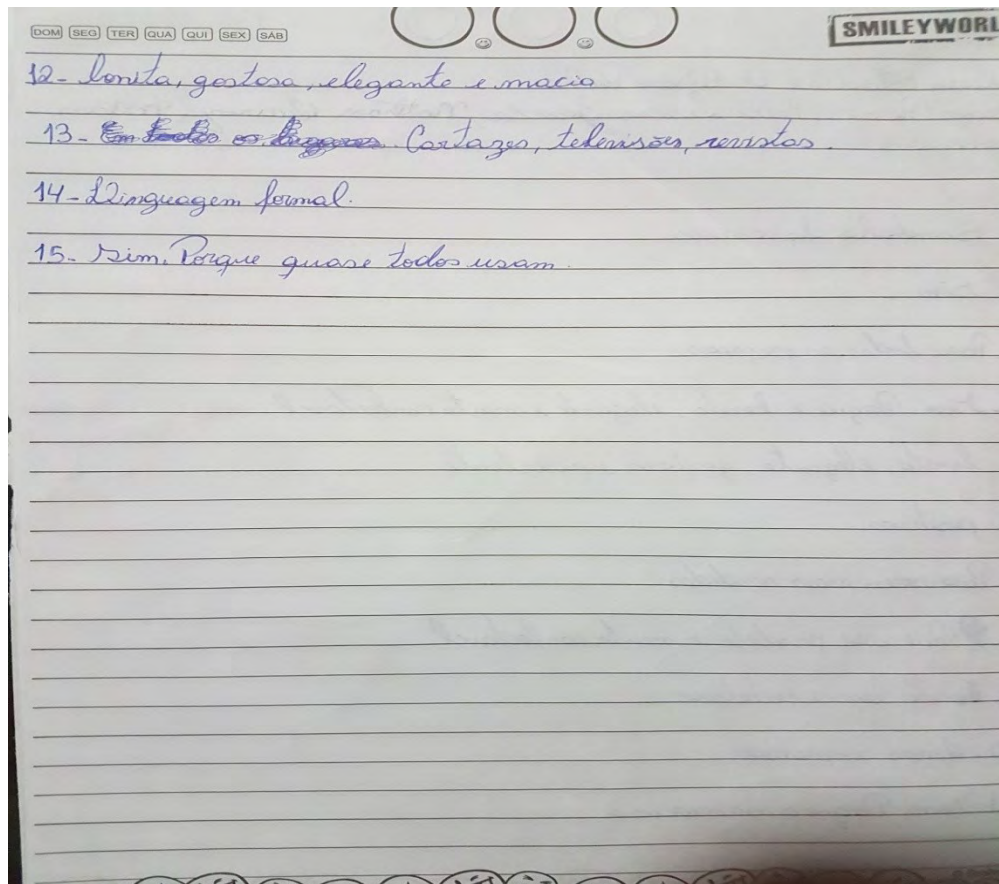 DOM SEG TER QUA QUI SEX SÁB
SMILEYWORL
12- bonita, gostosa, elegante e macia
13- Cartazes, televisões, revistas.
14- Linguagem formal.
15- Sim. Porque quase todos usam.